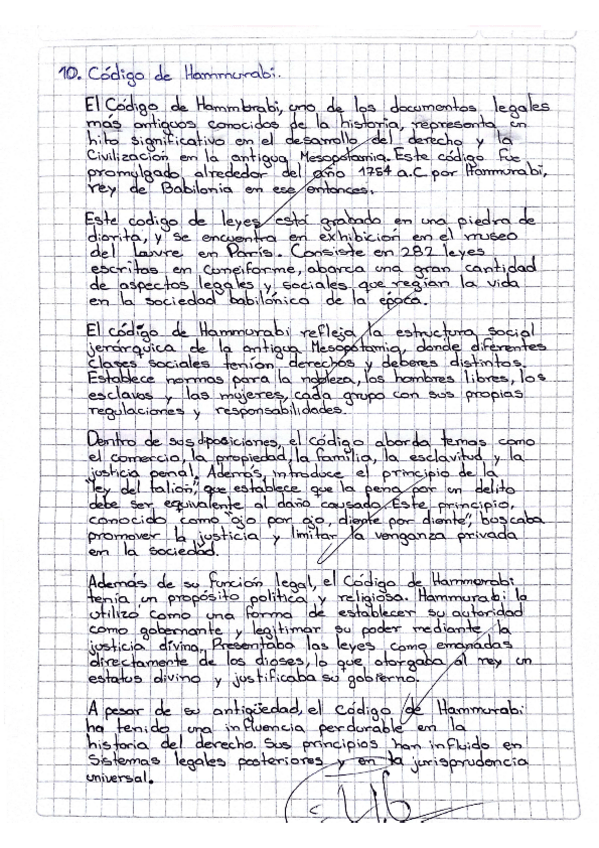 10. Código de Hammurabi.
El Código de Hammbrabi, uno de los documentos legales
más antiguos conocidos de la historia, representa un
hito significativo en el desarrollo del derecho y la
Civilización en la antigua Mesopotamia. Este código fue
promulgado alrededor del año 1754 a.C por Hammurabi,
rey de Babilonia en ese entonces.
Este codigo de leyes está grabado en una piedra de
diorita, y se encuentra en exhibición en el museo
del Louvre en París. Consiste en 282 leyes
escritas en cuneiforme, aborca una gran cantidad
de aspectos legales y sociales que regían la vida
en la sociedad babilónica de la época.
El código de Hammurabi refleja la estructura social
jerárquica de la antigua Mesopotamia, donde diferentes
clases sociales tenían derechos y deberes distintos.
Establece normas para la nobleza, los hombres libres, los
esclavos y las mujeres, cada grupo con sus propias
regulaciones y responsabilidades.
Dentro de sus disposiciones, el código aborda temas como
el comercio, la propiedad, la familia, la esclavitud y la
justicia penal. Además, introduce el principio de la
"ley del talión", que establece que la pena por un delito
debe ser equivalente al daño causado. Este principio,
conocido como "ojo por ojo, diente por diente", buscaba
promover la justicia y limitar la venganza privada
en la sociedad.
Además de su función legal, el Código de Hammurabi
tenía un propósito político y religioso. Hammurabi lo
utilizó como una forma de establecer su autoridad
como gobernante y legitimar su poder mediante la
justicia divina. Presentaba las leyes como emanadas
directamente de los dioses, lo que otorgaba al rey un
estatus divino y justificaba su gobierno.
A pesar de su antigüedad, el código de Hammurabi
ha tenido una influencia perdurable en la
historia del derecho. Sus principios han influido en
sistemas legales posteriores y en la jurisprudencia
universal.